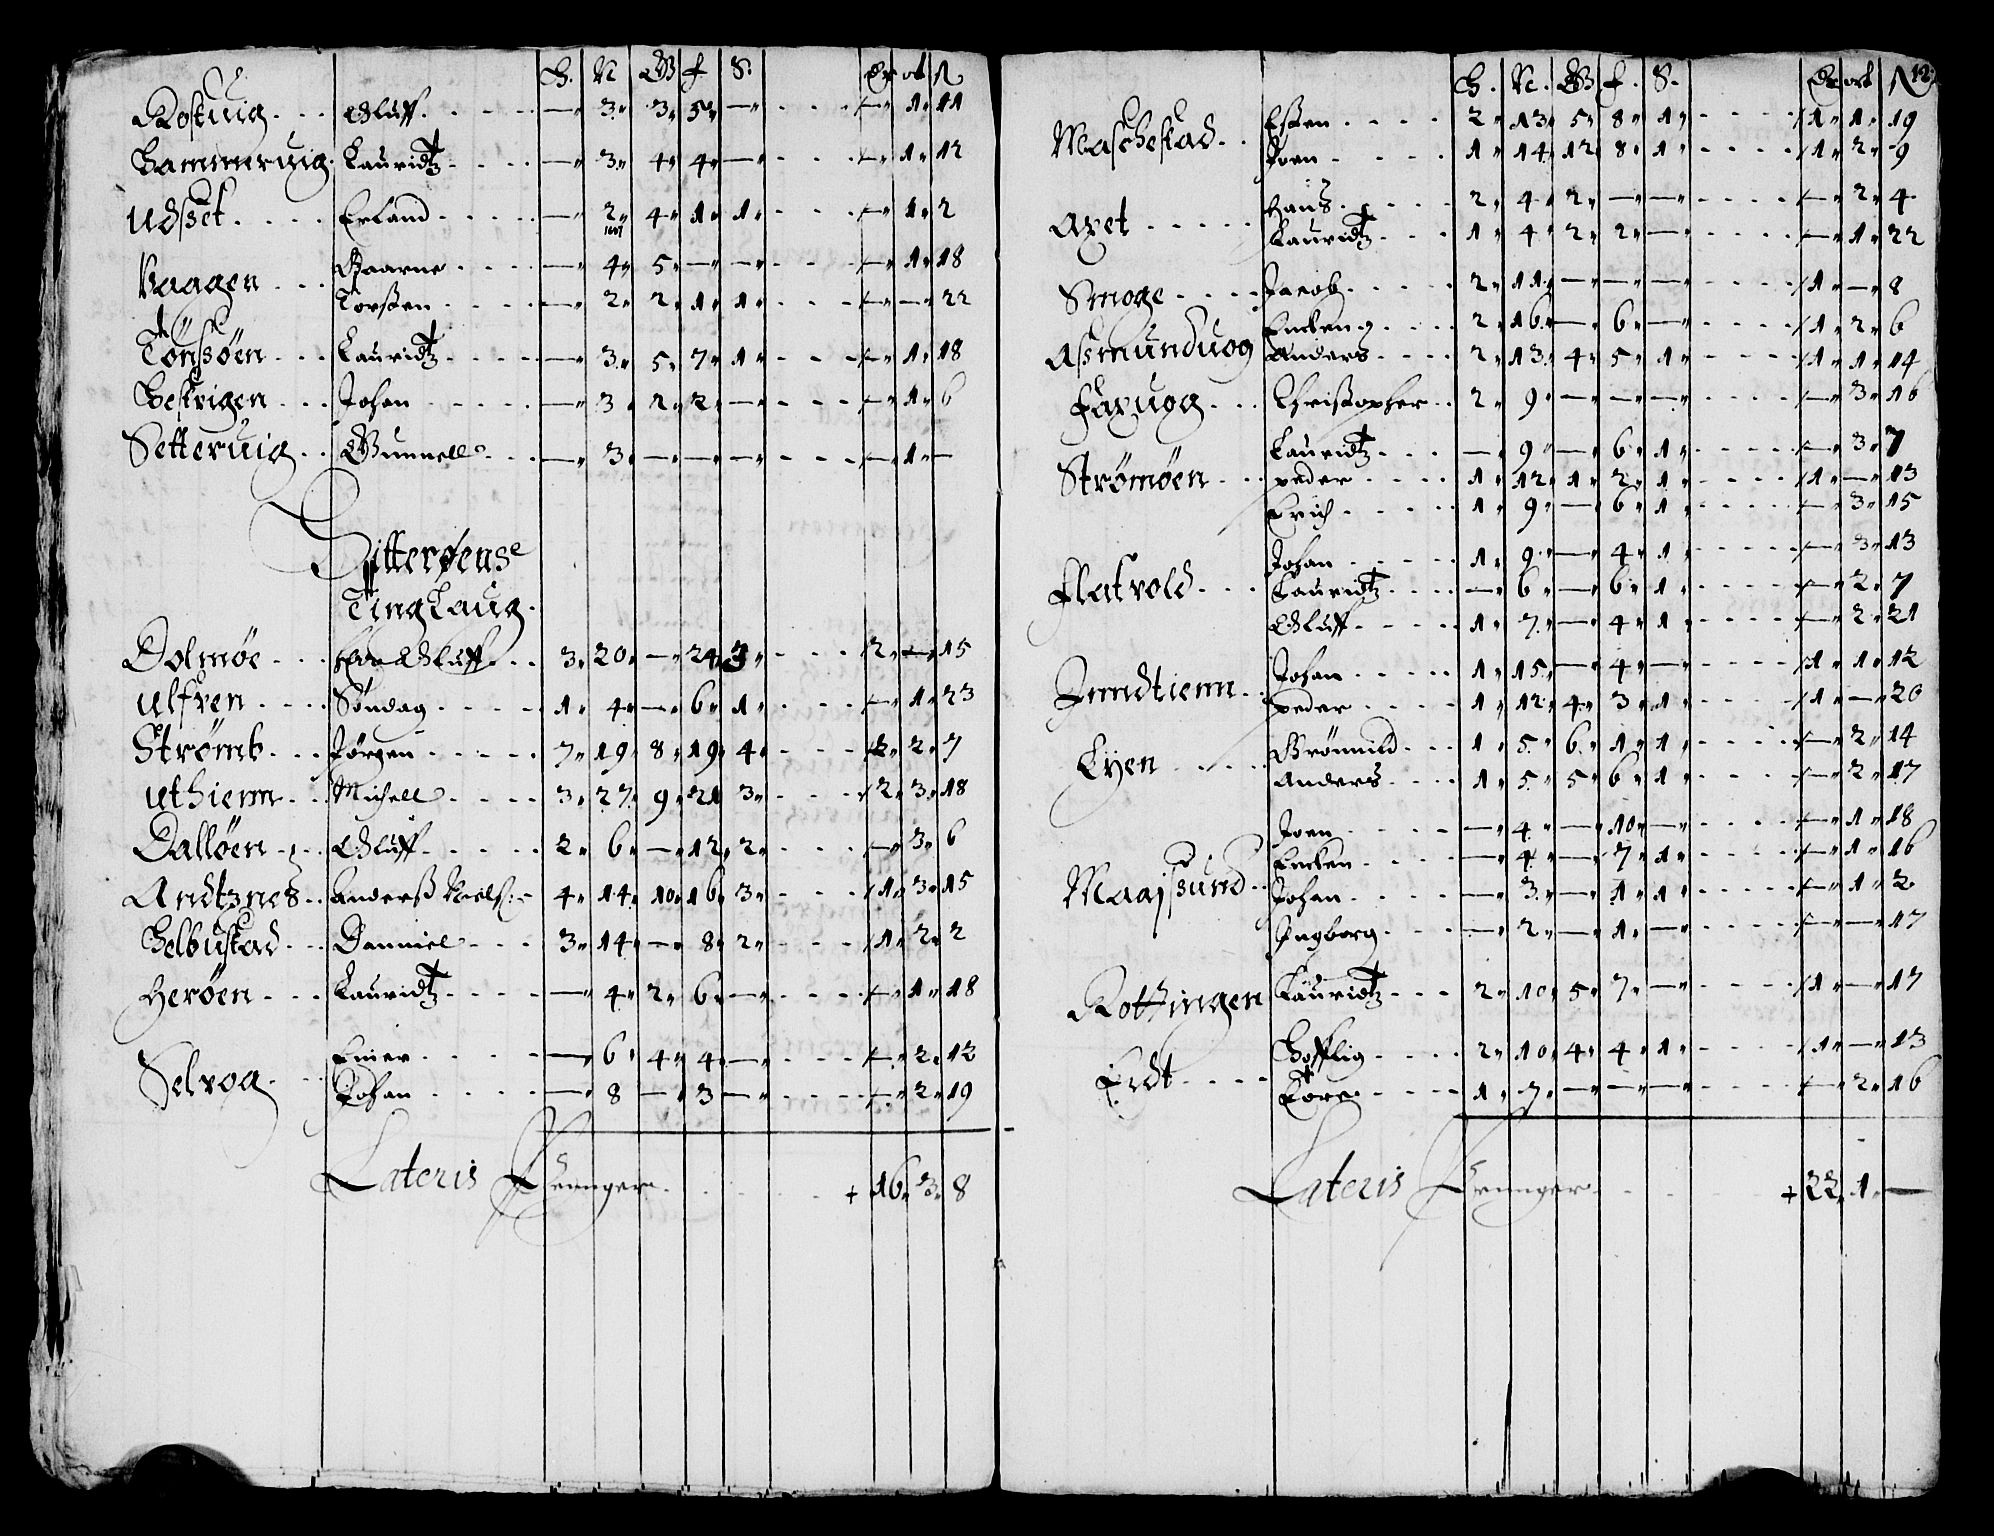 H. N W f S. Dr ort S
Rostuig Oluff — 3 3 5 — — 1 11
Hammeruig Lauridtz — 3 4 4 — — 1 12
Udset Erland — 2 4 1 1 — 1 2
Vaagen Gaarne — 4 5 — — — 1 18
Torsten — 2 2 1 1 — — 22
Tönsöen Lauridtz — 3 5 7 1 — 1 18
Beskrigen Johan — 3 2 2 — — 1 6
Setteruig Gunnell — 3 — — — — 1 —
Hitterøens
Ting Laug
Dolmøe Oluff 3 20 — 24 3 2 — 15
Ulfven Søndag 1 4 — 6 1 — 1 23
Strømb Jørgen 7 19 8 19 4 2 7
Uthiem Michell 3 27 9 21 3 2 3 18
Dalløen Oluff 2 6 — 12 2 — 3 6
Andtznes Anderß Niels 4 14 10 16 3 1 3 15
Helbustad Danniel 3 14 — 8 2 1 2 2
Herøen Lauridtz — 4 2 6 — — 1 18
Selvog Einer — 6 4 4 — — 2 12
Johan — 8 — 3 — — 2 19
Lateris Penger + 16 3 8
12
H. N. W f. S. Dr ort S
Maschestad Esten 2 13 5 8 1 1 1 19
Joen 1 14 12 8 1 1 2 9
Axet Hans 2 4 2 — — — 2 4
Lauridtz 1 4 2 2 — — 1 22
Smoge Jacob 2 11 — — — 1 — 8
Encken 2 16 — 6 — 1 2 6
Asmunduog Anders 2 13 4 5 1 1 1 14
Faxuog Christopher 2 9 — — — — 3 16
Lauridtz — 9 — 6 1 — 3 7
Strømøen peder 1 12 1 2 1 1 — 13
Erich 1 9 — 6 1 — 3 15
Johan 1 9 — 4 1 — 3 13
Flatvold Lauridtz — 6 — 6 1 — 2 7
Oluff 1 7 — 4 1 — 2 21
Jmdtiemn Johan 1 15 — 4 — 1 1 12
peder 1 12 4 3 1 1 — 20
Lyen Grönnild 1 5 6 1 1 — 2 14
Anders 1 5 5 6 1 — 2 17
Joen — 4 — 10 — — 1 18
Encken — 4 — 7 1 — 1 16
Maajsund Johan — 3 — 1 1 — 1 2
Ingborg — 2 — 1 — — — 17
Kottingen Lauridtz 2 10 5 7 — 1 — 17
Erdt 2 10 4 4 1 1 — 13
Tore 1 7 — — — — 2 16
Lateris Penger + 22 1 —